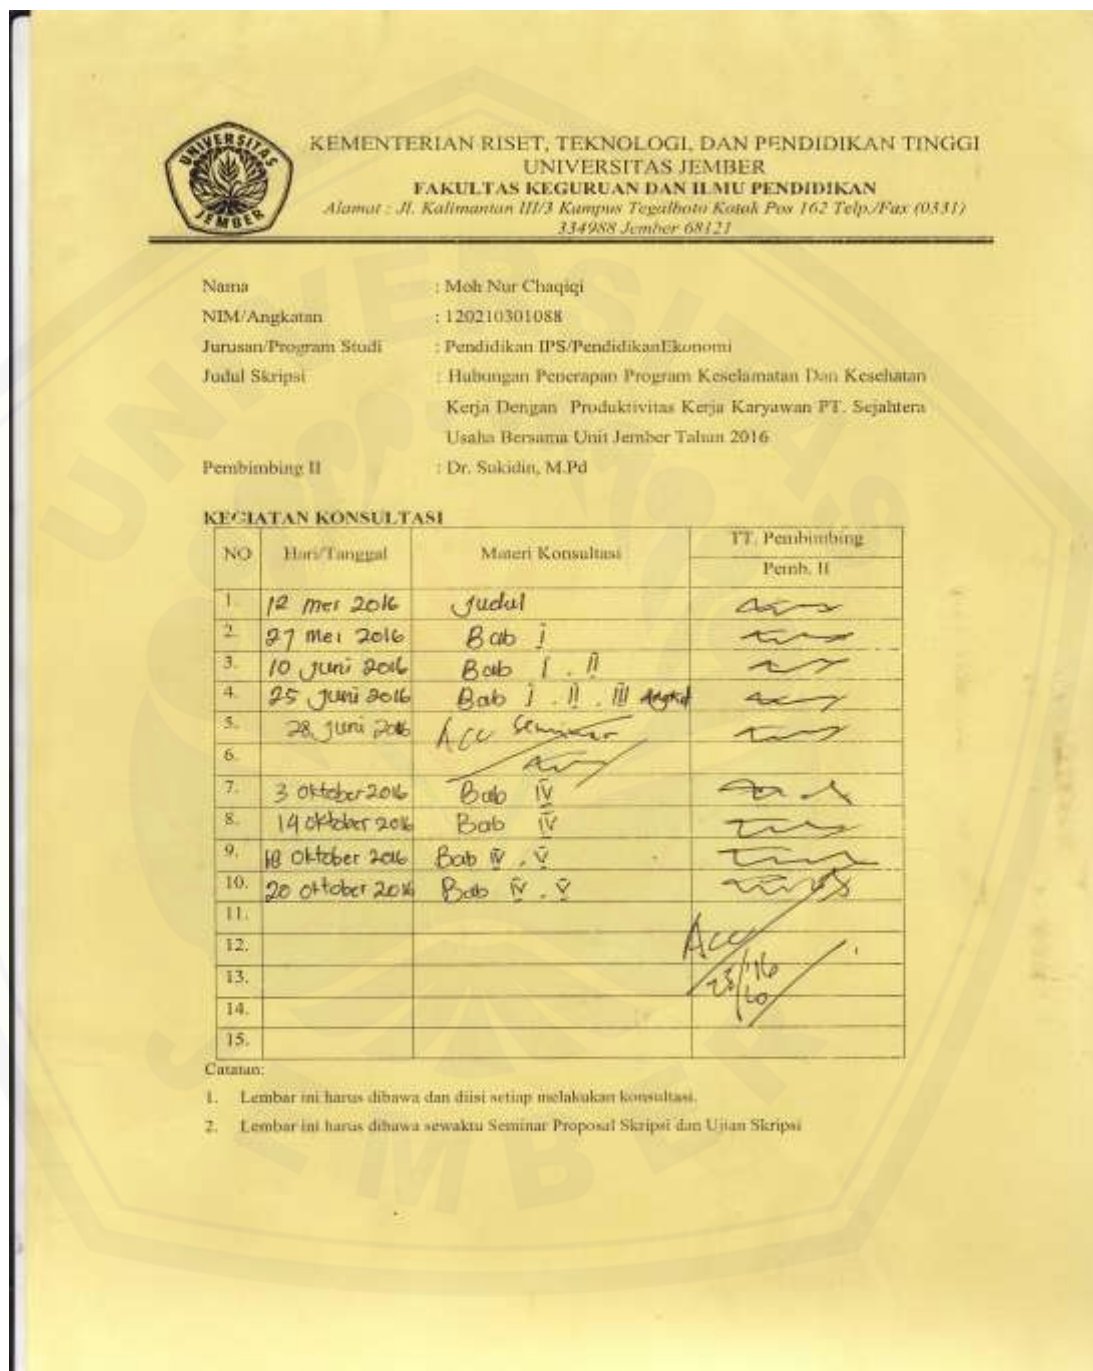 UNIVERSITAS
JEMBER
KEMENTERIAN RISET, TEKNOLOGI, DAN PENDIDIKAN TINGGI
UNIVERSITAS JEMBER
FAKULTAS KEGURUAN DAN ILMU PENDIDIKAN
Alamat : Jl. Kalimantan III/3 Kampus Tegalboto Kotak Pos 162 Telp./Fax (0331)
334988 Jember 68121
Nama : Moh Nur Chaqiqi
NIM/Angkatan : 120210301088
Jurusan/Program Studi : Pendidikan IPS/PendidikanEkonomi
Judul Skripsi : Hubungan Penerapan Program Keselamatan Dan Kesehatan
Kerja Dengan Produktivitas Kerja Karyawan PT. Sejahtera
Usaha Bersama Unit Jember Tahun 2016
Pembimbing II : Dr. Sukidin, M.Pd
KEGIATAN KONSULTASI
NO Hari/Tanggal Materi Konsultasi TT. Pembimbing
Pemb. II
1. 12 mei 2016 Judul
2. 27 mei 2016 Bab I
3. 10 Juni 2016 Bab I . II
4. 25 Juni 2016 Bab I . II . III Angket
5. 28 Juni 2016 Acc Seminar
6.
7. 3 Oktober 2016 Bab IV
8. 14 Oktober 2016 Bab IV
9. 18 Oktober 2016 Bab IV . V
10. 20 Oktober 2016 Bab IV . V
11.
12. Acc
13.
14.
15.
Catatan:
1. Lembar ini harus dibawa dan diisi setiap melakukan konsultasi.
2. Lembar ini harus dibawa sewaktu Seminar Proposal Skripsi dan Ujian Skripsi
UNIVERSITAS
JEMBER